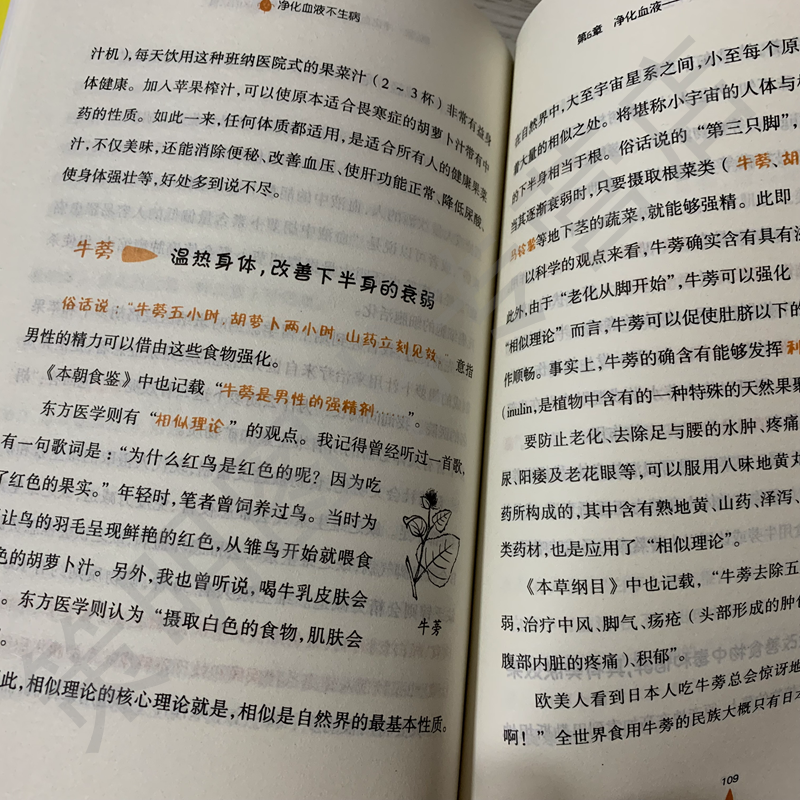 净化血液不生病
汁机),每天饮用这种班纳医院式的果菜汁(2~3杯)非常有益身
体健康。加入苹果榨汁,可以使原本适合畏寒症的胡萝卜汁带有中
药的性质。如此一来,任何体质都适用,是适合所有人的健康果菜
汁,不仅美味,还能消除便秘、改善血压、使肝功能正常、降低尿酸、
使身体强壮等,好处多到说不尽。
牛蒡 温热身体,改善下半身的衰弱
俗话说:“牛蒡五小时,胡萝卜两小时,山药立刻见效,”意指
男性的精力可以借由这些食物强化。
《本朝食鉴》中也记载“牛蒡是男性的强精剂”。
东方医学则有“相似理论”的观点。我记得曾经听过一首歌,
有一句歌词是:“为什么红鸟是红色的呢?因为吃
了红色的果实。”年轻时,笔者曾饲养过鸟。当时为
让鸟的羽毛呈现鲜艳的红色,从雏鸟开始就喂食
色的胡萝卜汁。另外,我也曾听说,喝牛乳皮肤会
。东方医学则认为“摄取白色的食物,肌肤会
。
此,相似理论的核心理论就是,相似是自然界的最基本性质。
牛蒡
第6章 净化血液——
在自然界中,大至宇宙星系之间,小至每个原
量大量的相似之处。将堪称小宇宙的人体与
的下半身相当于根。俗话说的“第三只脚”,
当其逐渐衰弱时,只要摄取根菜类(牛蒡、胡
马铃薯等地下茎的蔬菜,就能够强精。此即
以科学的观点来看,牛蒡确实含有具有
此外,由于“老化从脚开始”,牛蒡可以强化
“相似理论”而言,牛蒡可以促使肚脐以下的
作顺畅。事实上,牛蒡的确含有能够发挥利
(inulin,是植物中含有的一种特殊的天然果聚
要防止老化、去除足与腰的水肿、疼痛
尿、阳痿及老花眼等,可以服用八味地黄丸
药所构成的,其中含有熟地黄、山药、泽泻、
类药材,也是应用了“相似理论”。
《本草纲目》中也记载,“牛蒡去除五
弱,治疗中风、脚气、疡疮(头部形成的肿
腹部内脏的疼痛)、积郁”。
欧美人看到日本人吃牛蒡总会惊讶地
啊!”全世界食用牛蒡的民族大概只有日本
109